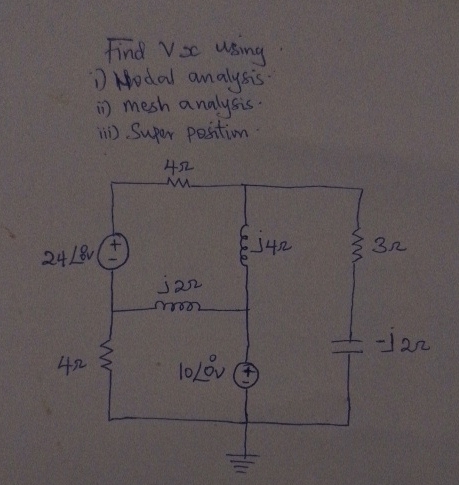 Find Vx using.
i) Nodal analysis.
ii) mesh analysis.
iii) Super position.
4Ω
24∠0°v
+
-
j4Ω
3Ω
j2Ω
4Ω
10∠0°v
+
-
-j2Ω